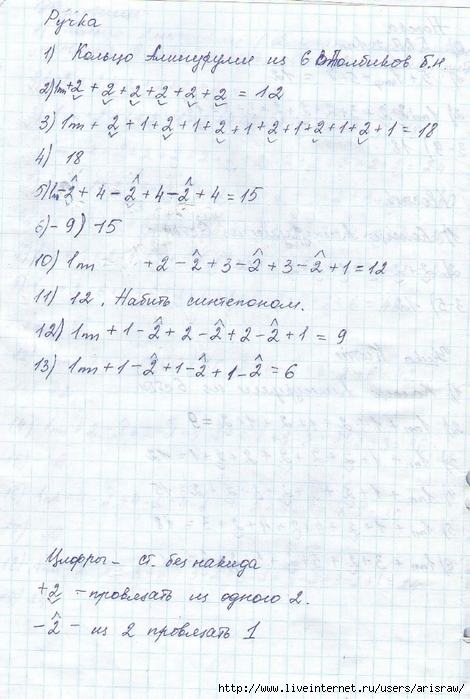 Ручка
1) Кольцо Амигуруми из 6 столбиков б.н.
2) 1m+2 + 2 + 2 + 2 + 2 + 2 = 12
3) 1m + 2 + 1 + 2 + 1 + 2 + 1 + 2 + 1 + 2 + 1 + 2 + 1 = 18
4) 18
5) 1m - 2̂ + 4 - 2̂ + 4 - 2̂ + 4 = 15
6) - 9) 15
10) 1m + 2 - 2̂ + 3 - 2̂ + 3 - 2̂ + 1 = 12
11) 12. Набить синтепоном.
12) 1m + 1 - 2̂ + 2 - 2̂ + 2 - 2̂ + 1 = 9
13) 1m + 1 - 2̂ + 1 - 2̂ + 1 - 2̂ = 6
Цифры - ст. без накида
+2 - провязать из одного 2.
-2̂ - из 2 провязать 1
http://www.liveinternet.ru/users/arisraw/